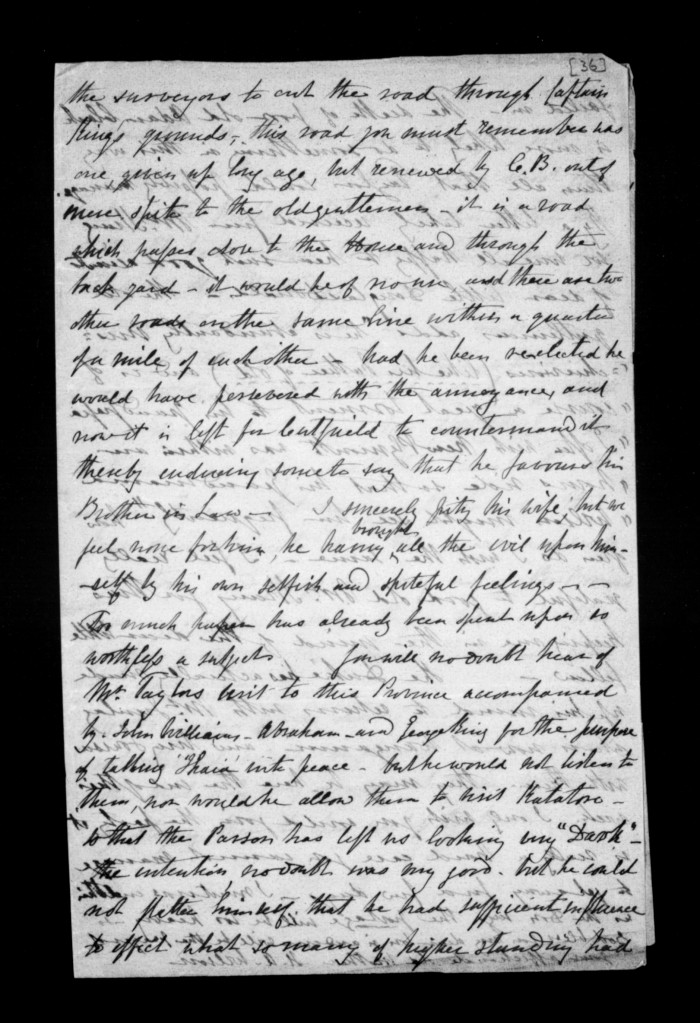 [36]
the surveyors to cut the road through Captain
Kings grounds, this road you must remember was
one given up long ago, but renewed by C.B. out of
mere spite to the old gentlemen - it is a road
which passes close to the House and through the
back yard - it would be of no use and there are two
other roads on the same line within a quarter
of a mile of each other - had he been reelected he
would have persevered with the annoyance, and
now it is left for Cutfield to countermand it
thereby inducing some to say that he favours his
Brother in Law - I sincerely pity his wife, but we
feel none for him, he having brought all the evil upon him-
-self by his own selfish and spiteful feelings - -
Too much paper has already been spent upon so
worthless a subject you will no doubt hear of
Mr. Taylors visit to this Province accompanied
by John Williams - Abraham - and George King for the purpose
of talking Ihaia into peace - but he would not listen to
them, nor would he allow them to visit Katatore -
so that the Parson has left us looking very "Dark" -
the intention no doubt was very good - but he could
not flatter himself that he had sufficient influence
to effect what so many of higher standing had